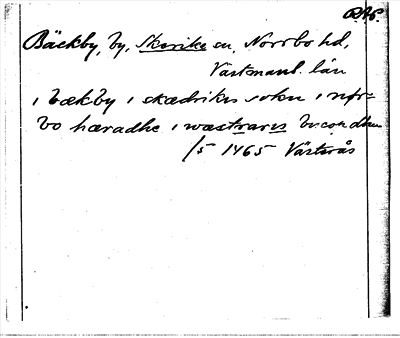 RAP.
Bäckby, by, Skerike sn, Norrbo hd,
Västmanl. län
i bækby i skædrikes sokn i nør=
bo hæradhe i wæstrarus
/5 1465 Västerås